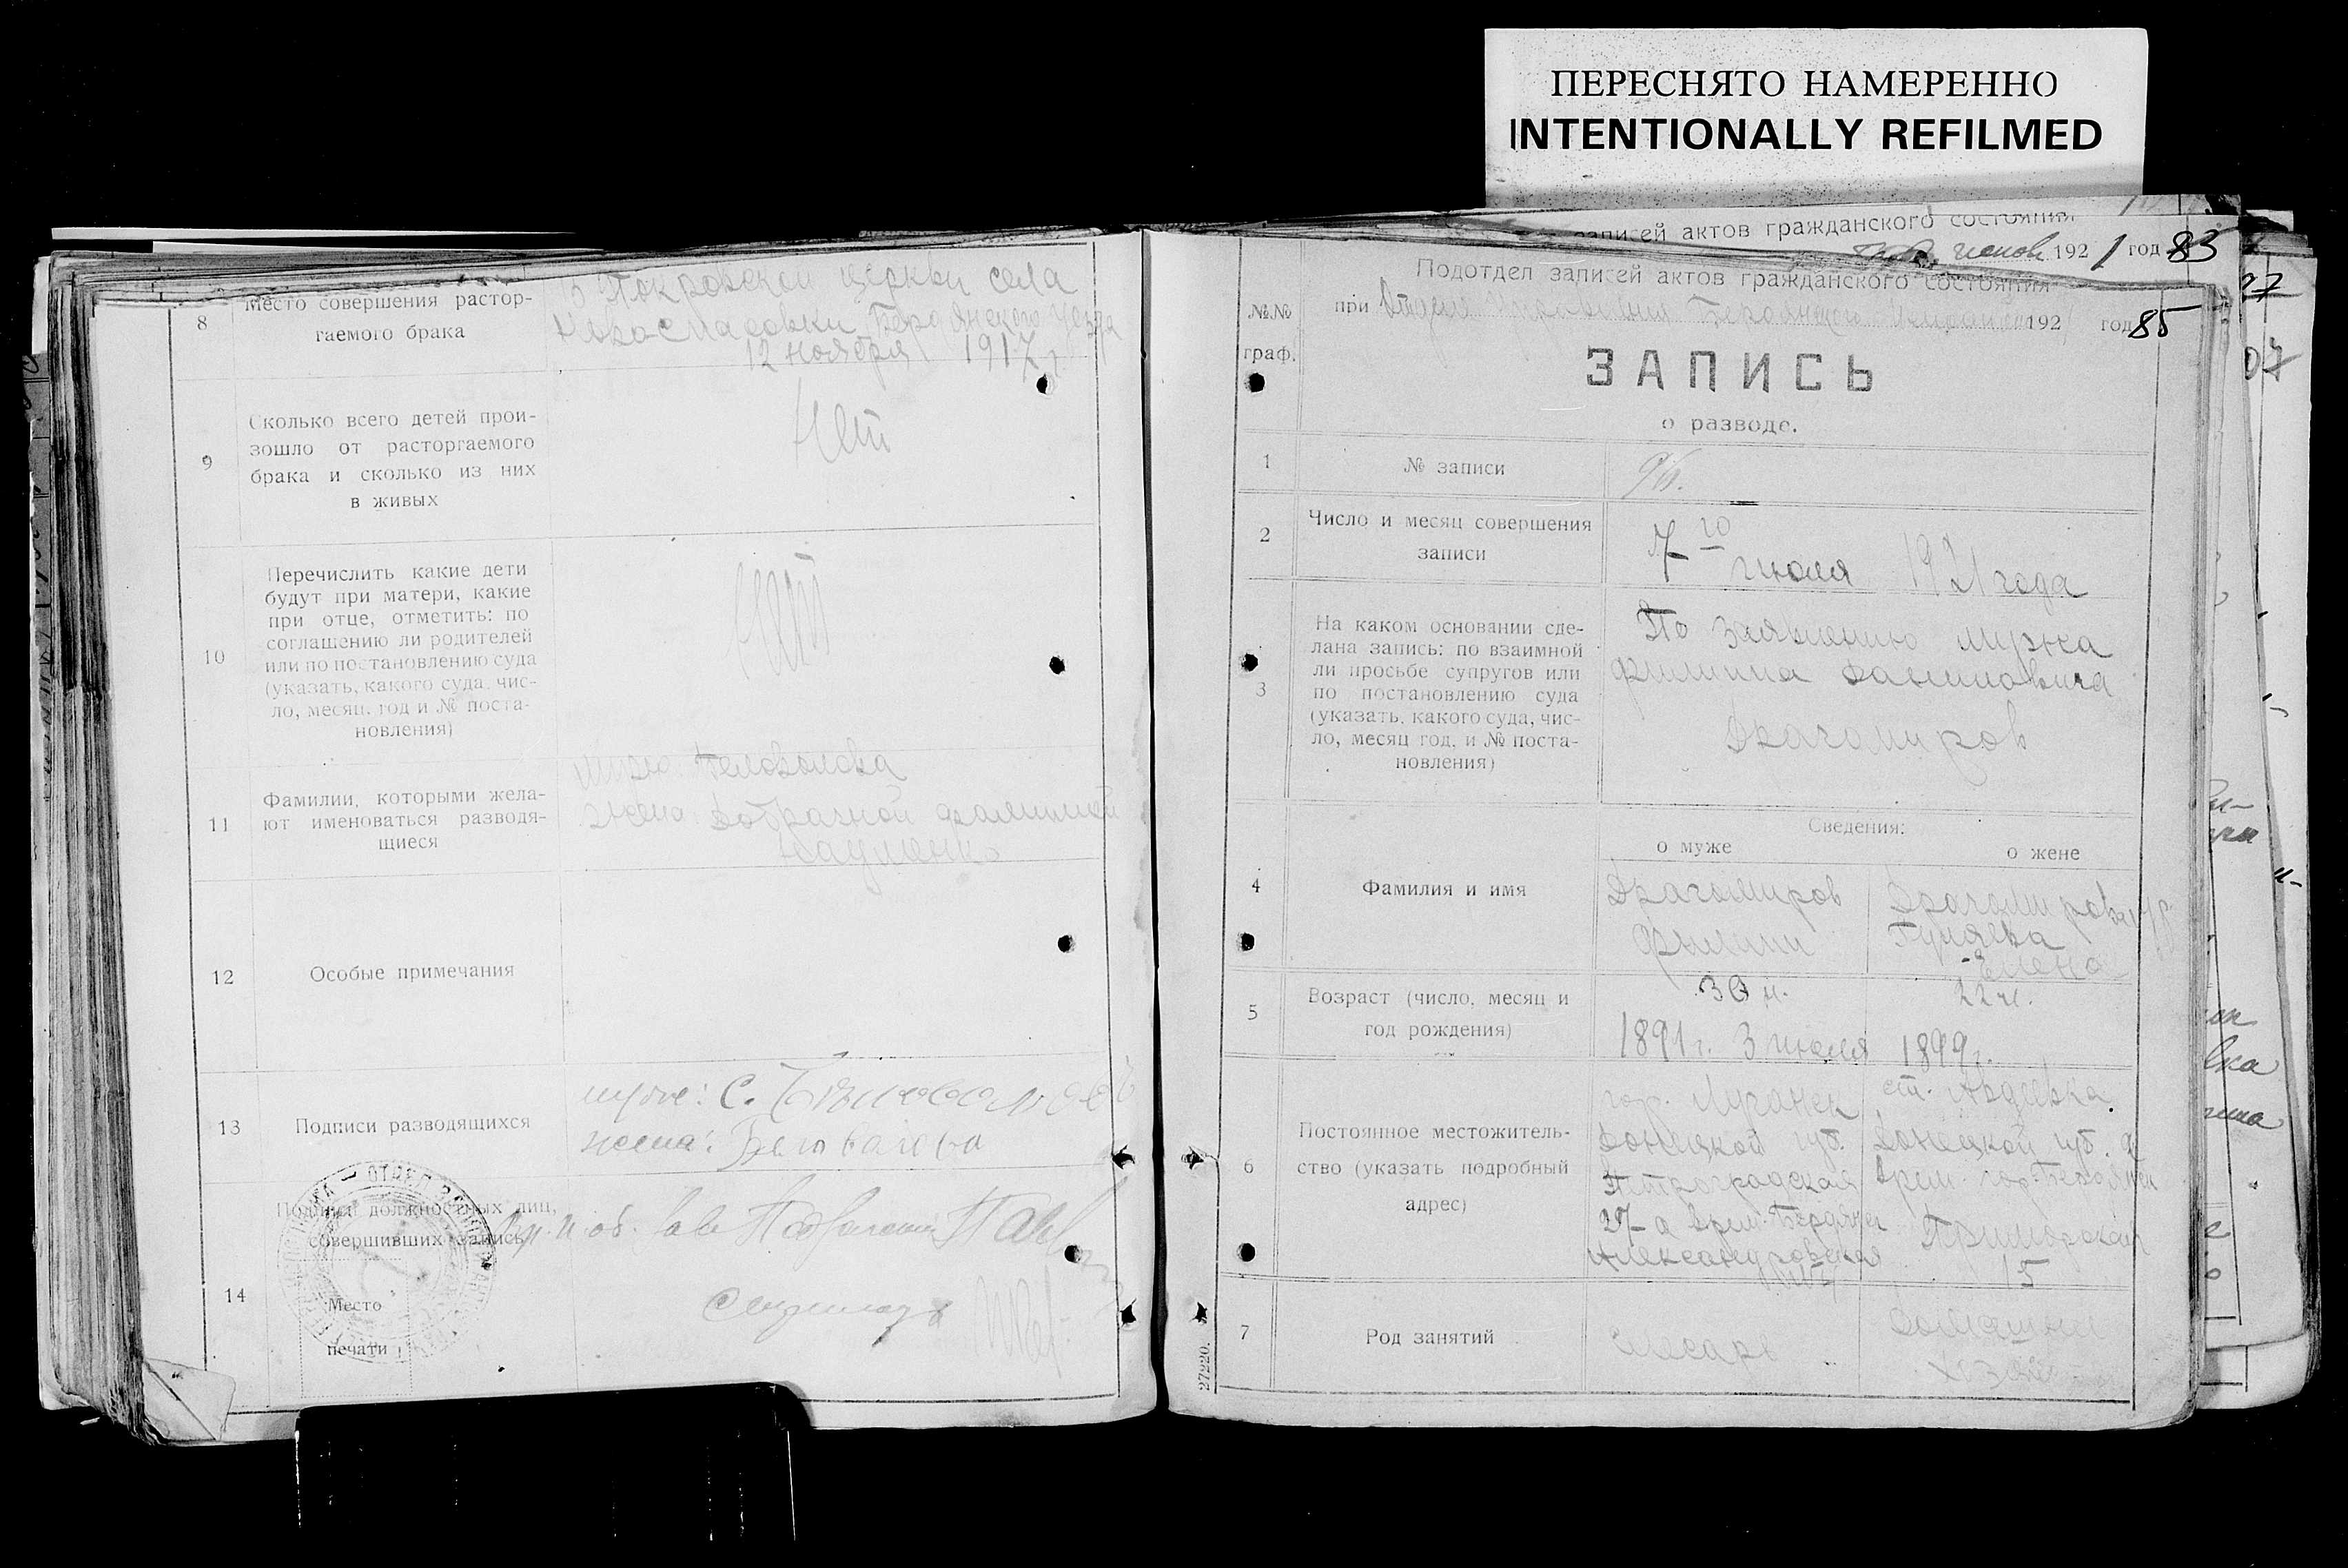 ПЕРЕСНЯТО НАМЕРЕННО
INTENTIONALLY REFILMED
8
Место совершения растор-
гаемого брака
В Покровской церкви села
Новоспасовки Бердянского уезда
12 ноября 1917 г.
9
Сколько всего детей прои-
зошло от расторгаемого
брака и сколько из них
в живых
Нет
10
Перечислить какие дети
будут при матери, какие
при отце, отметить: по
соглашению ли родителей
или по постановлению суда
(указать, какого суда, чис-
ло, месяц, год и № поста-
новления)
Нет
11
Фамилии, которыми жела-
ют именоваться разводя-
щиеся
Белозолова
жена добрачной фамилией
Науменко
12
Особые примечания
13
Подписи разводящихся
муж: С.
жена:
14
Подписи должностных лиц,
совершивших запись
Место
печати
записей актов гражданского состояния
192 1 год 83
Подотдел записей актов гражданского состояния
при Отделе Управления Бердянского 192 год 85
№№
граф.
ЗАПИСЬ
о разводе.
1
№ записи
96.
2
Число и месяц совершения
записи
7го июля 1921 года
3
На каком основании сде-
лана запись: по взаимной
ли просьбе супругов или
по постановлению суда
(указать, какого суда, чис-
ло, месяц год, и № поста-
новления)
По заявлению мужа
Филиппа Данииловича
Драгомиров
Сведения:
о муже
о жене
4
Фамилия и имя
Драгомиров
Филипп
Драгомирова ур.
Гуляева
Елена
5
Возраст (число, месяц и
год рождения)
30 л.
1891 г. 3 июля
22 л.
1899 г.
6
Постоянное местожитель-
ство (указать подробный
адрес)
гор. Луганск
Донецкой губ.
Петроградская
27 а врем. Бердянск
Александровская
ст. Авдеевка
Донецкой губ. а
врем. гор. Бердянск
Приморская
15
7
Род занятий
Слесарь
Домашняя
хозяй.
27220.